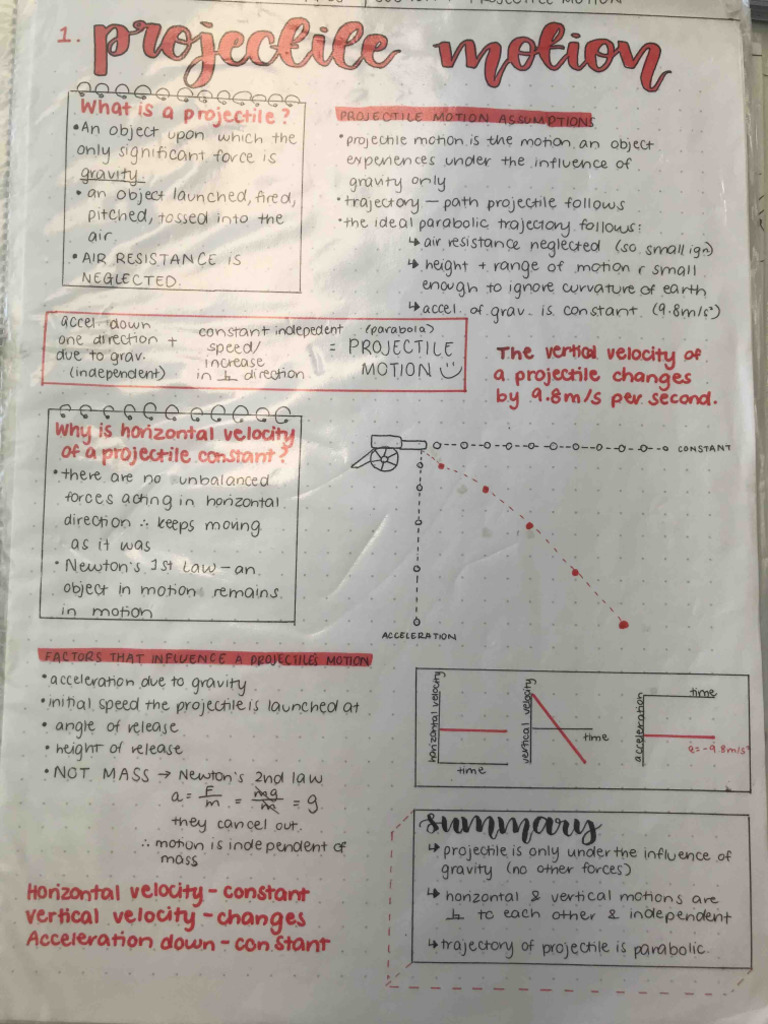 1. projectile motion
What is a projectile?
• An object upon which the
only significant force is
gravity.
• an object launched, fired,
pitched, tossed into the
air.
• AIR RESISTANCE IS
NEGLECTED.
PROJECTILE MOTION ASSUMPTIONS
• projectile motion is the motion an object
experiences under the influence of
gravity only
• trajectory — path projectile follows
• the ideal parabolic trajectory follows:
↳ air resistance neglected (so small ign)
↳ height + range of motion r small
enough to ignore curvature of earth
↳ accel. of grav. is constant. (9.8m/s²)
accel down
one direction +
due to grav.
(independent)
constant indepedent
speed/
increase
in ⊥ direction
(parabola)
= PROJECTILE
MOTION
The vertial velocity of
a projectile changes
by 9.8m/s per second.
Why is horizontal velocity
of a projectile constant?
• there are no unbalanced
forces acting in horizontal
direction ∴ keeps moving
as it was
• Newton's 1st Law – an
object in motion remains
in motion
CONSTANT
ACCELERATION
FACTORS THAT INFLUENCE A PROJECTILE'S MOTION
• acceleration due to gravity
• initial speed the projectile is launched at
• angle of release
• height of release
• NOT MASS → Newton's 2nd law
a = F/m = mg/m = g
they cancel out.
∴ motion is independent of
mass
Horizontal velocity – constant
vertical velocity – changes
Acceleration down – constant
horizontal velocity
time
vertical velocity
time
acceleration
time
a = -9.8m/s²
summary
↳ projectile is only under the influence of
gravity (no other forces)
↳ horizontal & vertical motions are
⊥ to each other & independent
↳ trajectory of projectile is parabolic.